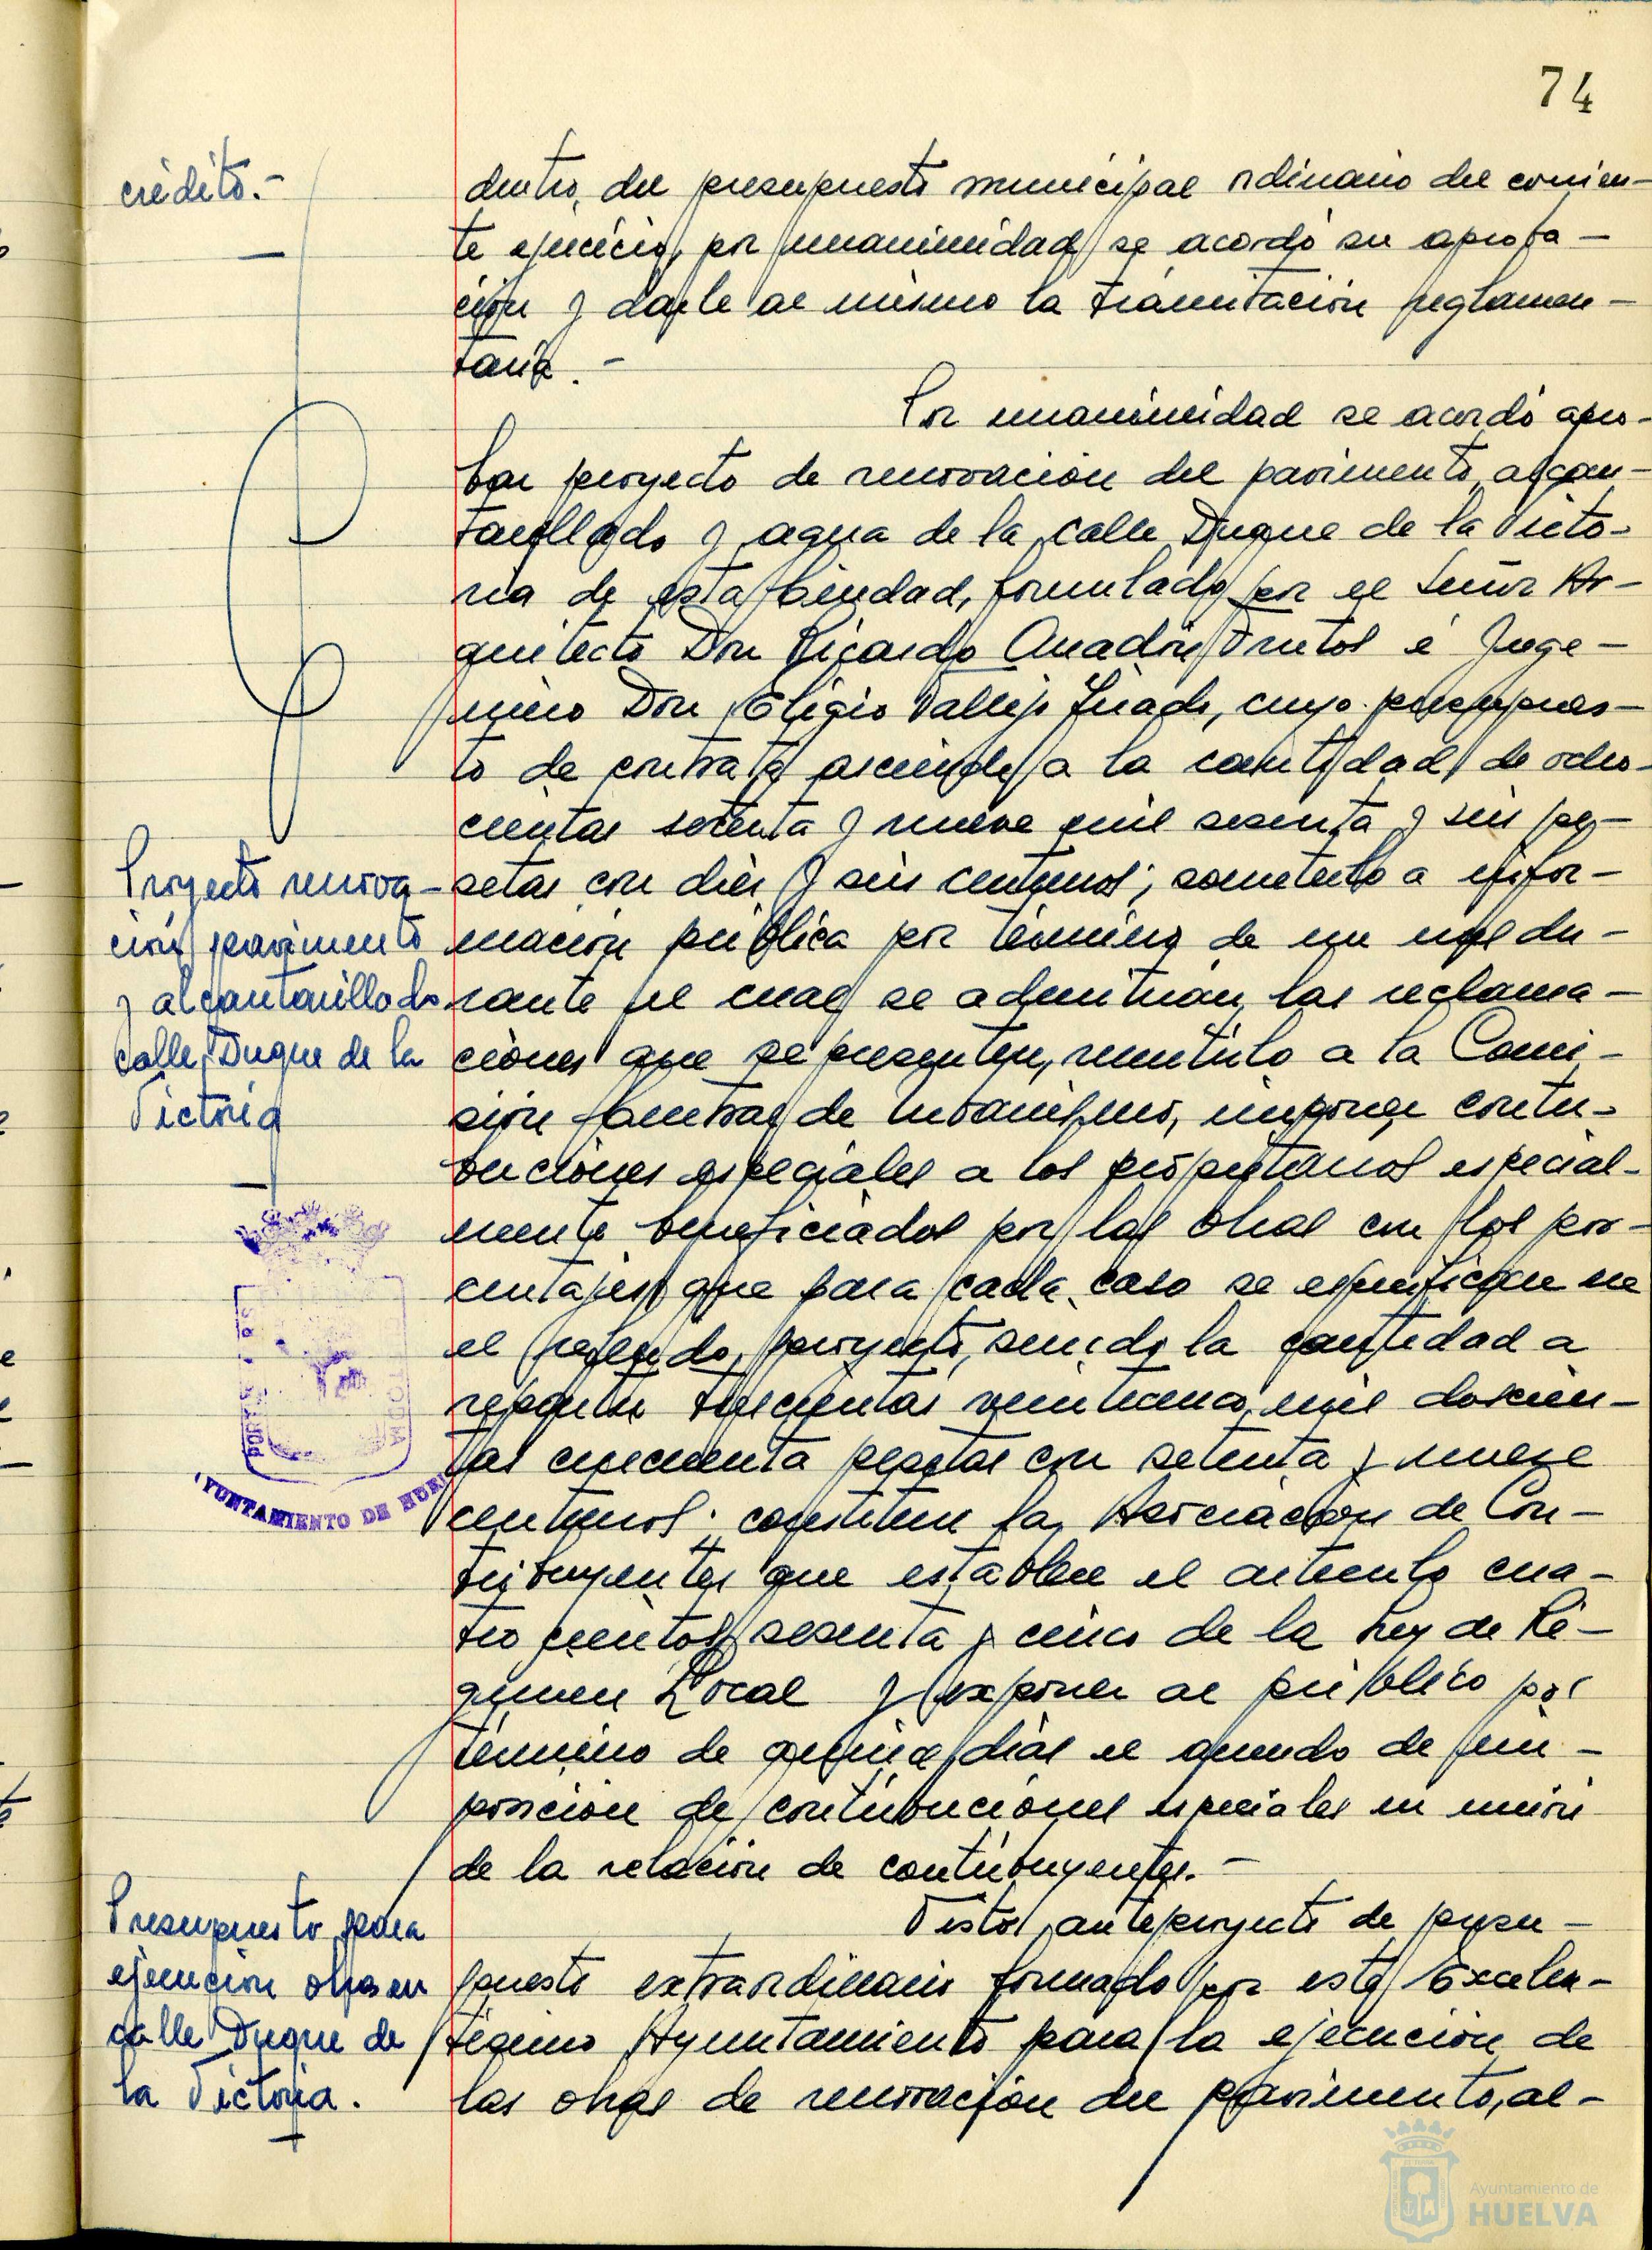 74
crédito.-
dentro, del presupuesto municipal ordinario del corrien-
te ejercicio, por unanimidad se acordó su aproba-
ción y darle al mismo la tramitación reglamen-
taria.-
Por unanimidad se acordó apro-
bar proyecto de renovación del pavimento, alcan-
tarillado y agua de la calle Duque de la Victo-
ria de esta Ciudad, formulado por el Señor Ar-
quitecto Don Ricardo Anadón Frutos é Inge-
niero Don Eligio Vallejo Tirado, cuyo presupues-
to de contrata asciende a la cantidad de ocho-
cientas setenta y nueve mil sesenta y seis pe-
Proyecto renova-
ción pavimento
y alcantarillado
calle Duque de la
Victoria
setas con diez y seis centimos; someterlo a infor-
mación pública por término de un mes du-
rante el cual se admitirán las reclama-
ciones que se presenten, remitirlo a la Comi-
sión Central de Urbanismo, imponer contri-
buciones especiales a los propietarios especial-
mente beneficiados por las obras con los por-
centajes que para cada caso se especifican en
el referido proyecto, siendo la cantidad a
repartir trescientas mil doscien-
tas cincuenta pesetas con setenta y nueve
centimos; constituir la Asociación de Con-
tribuyentes que establece el artículo cua-
trocientos sesenta y cinco de la Ley de Ré-
gimen Local y exponer al público por
término de quince días el acuerdo de im-
posición de contribuciones especiales en unión
de la relación de contribuyentes.-
PORTUS
CUSTODIA
AYUNTAMIENTO DE HUELVA
Presupuesto para
ejecución obras en
calle Duque de
la Victoria.
Visto, anteproyecto de presu-
puesto extraordinario formado por este Excelen-
tísimo Ayuntamiento para la ejecución de
las obras de renovación del pavimento, al-
Ayuntamiento de
HUELVA